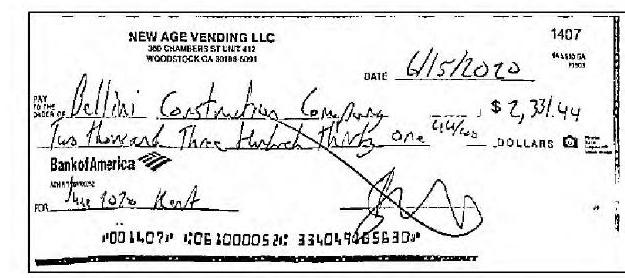 NEW AGE VENDING LLC
360 CHAMBERS ST UNIT 412
WOODSTOCK GA 30188-5091
1407
DATE 6/15/2020
PAY TO THE ORDER OF Bellini Construction Company $ 2,331.44
Two Thousand Three Hundred Thirty one 44/100 DOLLARS
Bank of America
FOR June 2020 Rent
⑈001407⑈ ⑆061000052⑆ 334049465630⑈